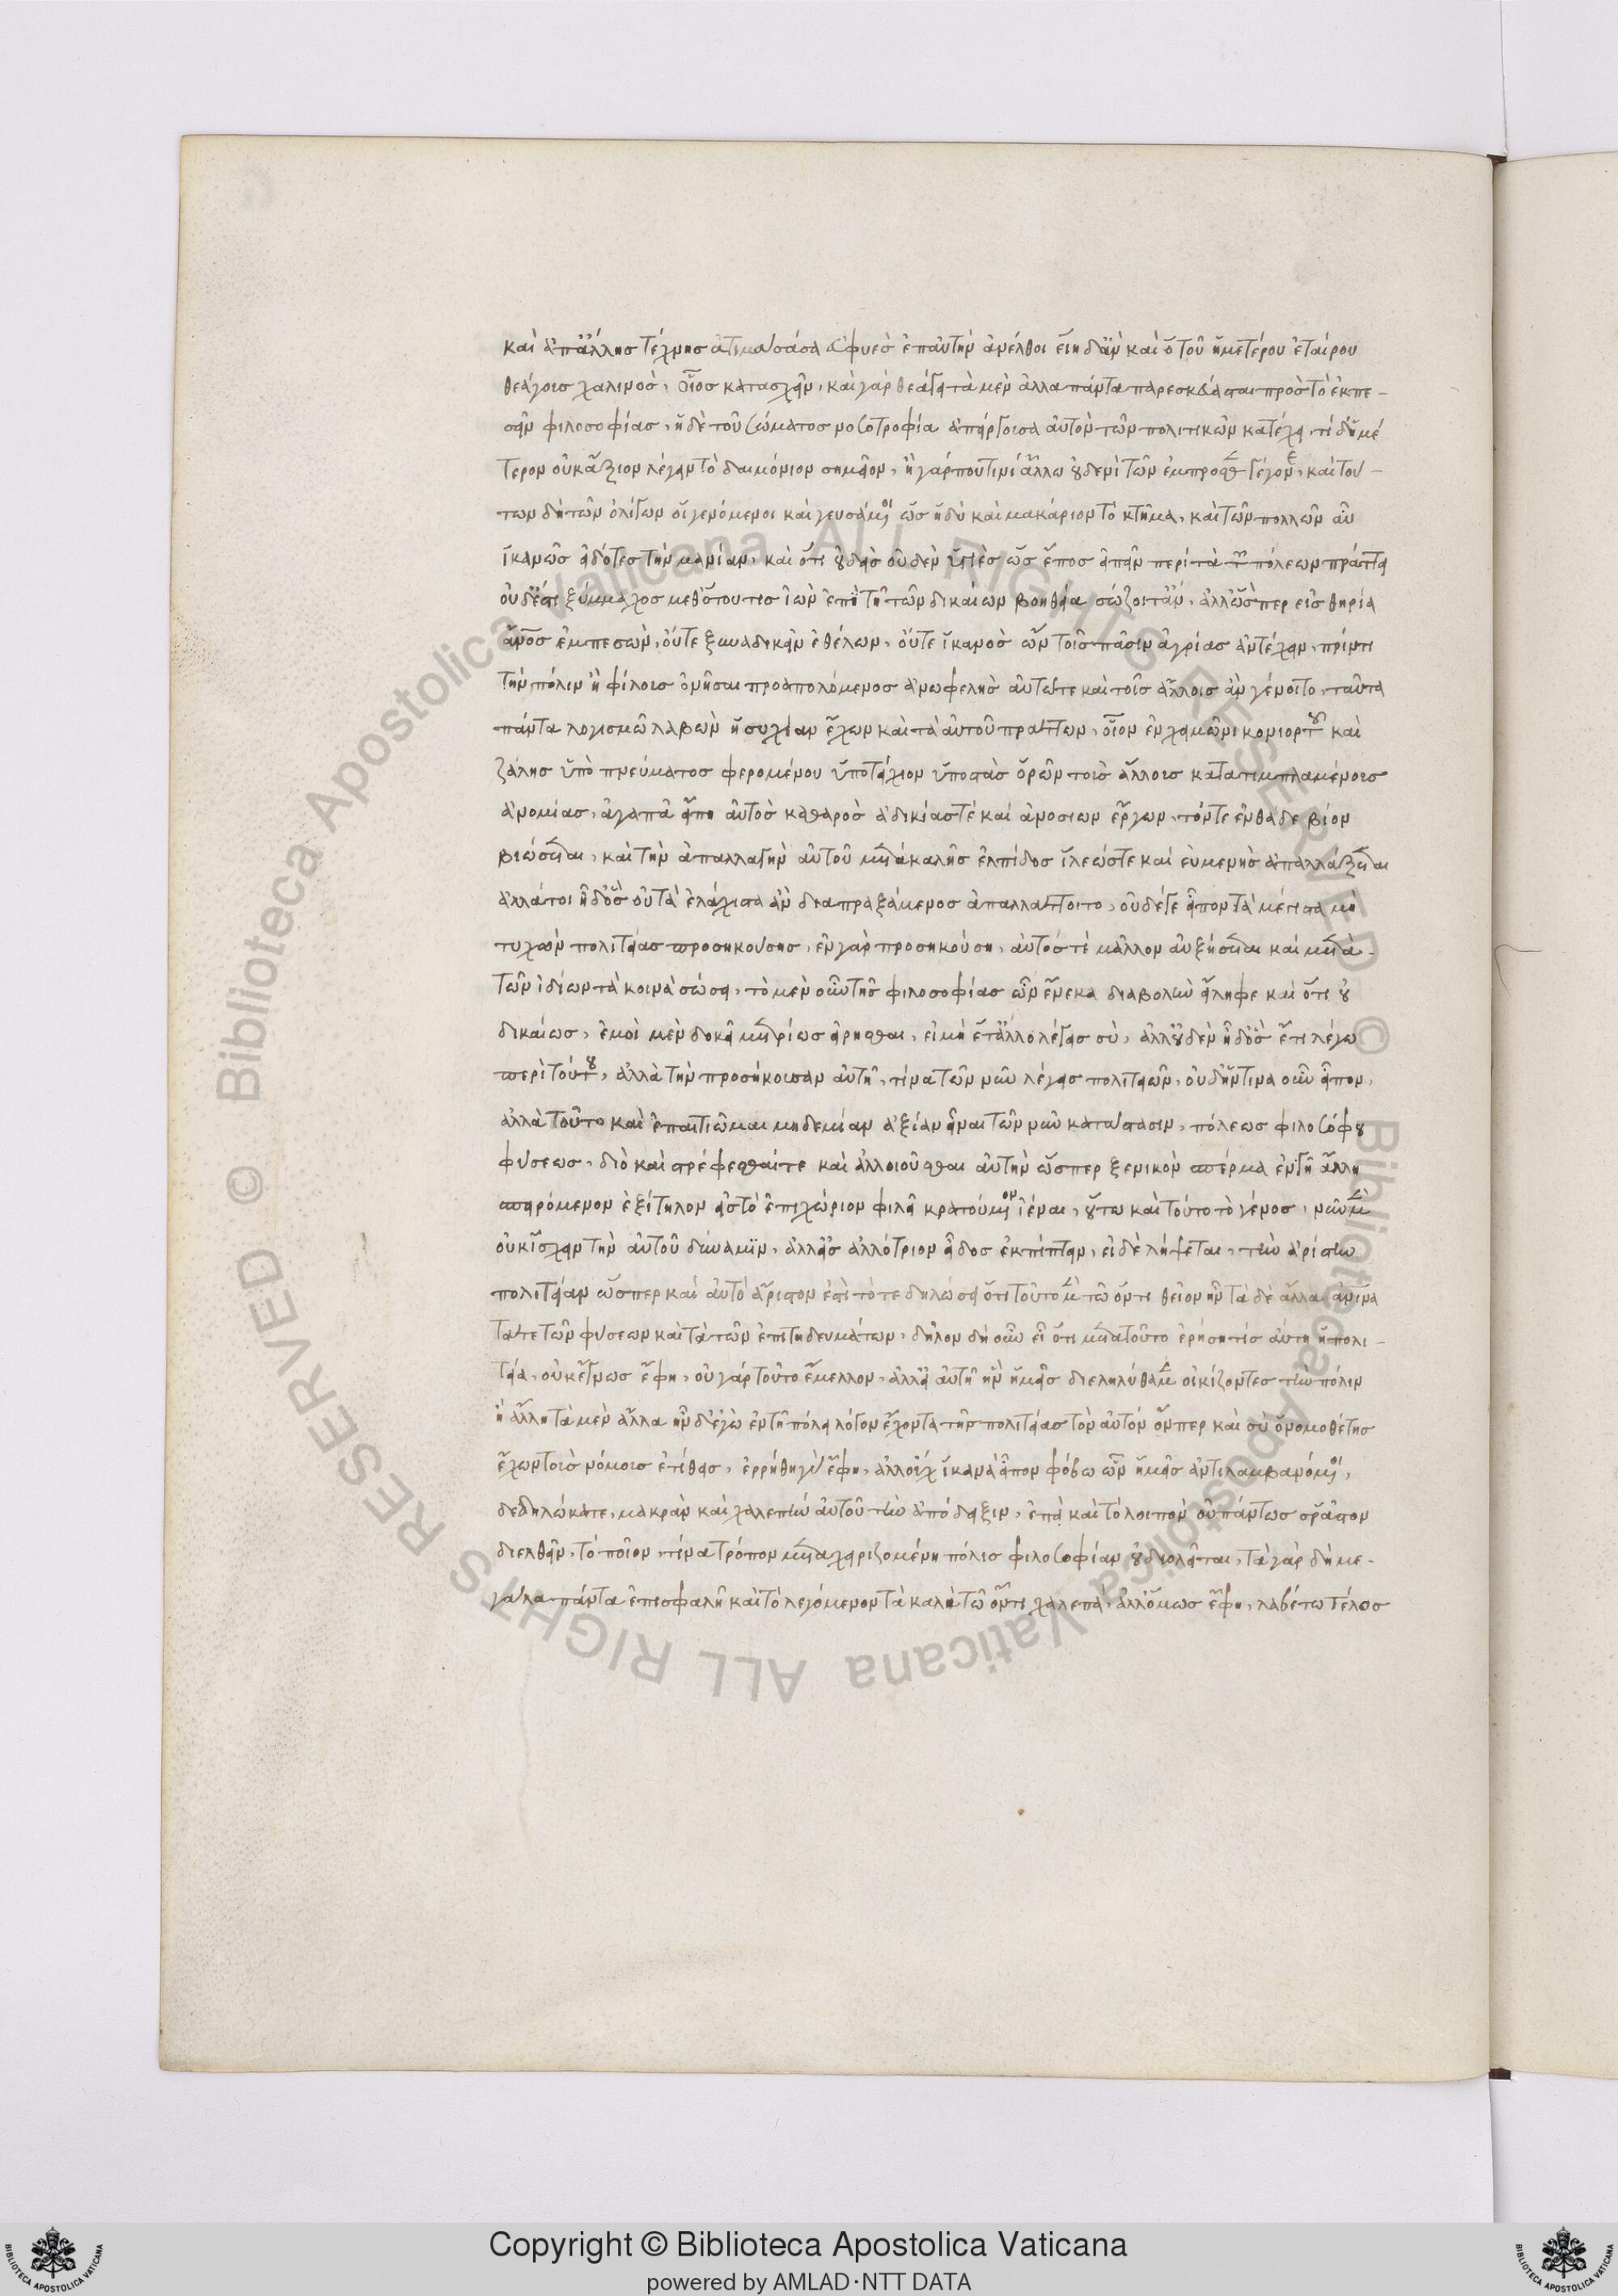 καὶ ἀπ' ἄλλης τέχνης ἀτιμάσασα εὐφυὲσ ἐπ' αὐτὴν ἀνέλθοι εἴη δ' ἂν καὶ ὁ τοῦ ἡμετέρου ἑταίρου
θεάγοισ χαλινοσ, οἷοσ κατασχεῖν, καὶ γὰρ θεάγει τὰ μὲν ἄλλα πάντα παρεσκεύασται πρὸσ τὸ ἐκπε-
σεῖν φιλοσοφίασ, ἡ δὲ τοῦ σώματοσ νοσοτροφία ἀπείργουσα αὐτὸν τῶν πολιτικῶν κατέχει, τὸ δ' ἡμέ
τερον οὐκ ἄξιον λέγειν τὸ δαιμόνιον σημεῖον, ἢ γάρ που τινὶ ἄλλω οὐδενὶ τῶν ἔμπροσθεν γέγονε, καὶ του-
των δὴ τῶν ὀλίγων οἱ γενόμενοι καὶ γευσάμενοι ὡσ ἡδὺ καὶ μακάριον τὸ κτῆμα, καὶ τῶν πολλῶν αὖ
ἱκανῶσ ἰδόντεσ τὴν μανίαν, καὶ ὅτι οὐδεὶσ οὐδὲν ὑγιὲσ ὡσ ἔποσ εἰπεῖν περὶ τὰ τῶν πόλεων πράττει
οὐδ' ἔστι ξύμμαχοσ μεθ' ὅτου τισ ἰὼν ἐπὶ τῇ τῶν δικαίων βοηθεία σώζοιτ' ἄν, ἀλλ' ὥσπερ εἰσ θηρία
ἄνθρωποσ ἐμπεσὼν, οὔτε ξυναδικεῖν ἐθέλων, οὔτε ἱκανὸσ ὢν τοῖσ πᾶσιν ἀγρίασ ἀντέχειν, πρίν τι
τὴν πόλιν ἢ φίλουσ ὀνῆσαι προαπολόμενοσ ἀνωφελὴσ αὑτῶ τε καὶ τοῖσ ἄλλοισ ἂν γένοιτο, ταῦτα
πάντα λογισμῶ λαβὼν ἡσυχίαν ἔχων καὶ τὰ αὑτοῦ πράττων, οἷον ἐν χειμῶνι κονιορτοῦ καὶ
ζάλησ ὑπὸ πνεύματοσ φερομένου ὑπὸ τειχίον ὑποστὰσ ὁρῶν τοὺσ ἄλλουσ καταπιμπλαμένουσ
ἀνομίασ, ἀγαπᾶ εἴ πη αὐτὸσ καθαρὸσ ἀδικίασ τὲ καὶ ἀνοσίων ἔργων, τόν τε ἐνθάδε βίον
βιώσεται, καὶ τὴν ἀπαλλαγὴν αὐτοῦ μετὰ καλῆσ ἐλπίδοσ ἵλεώσ τε καὶ εὐμενὴσ ἀπαλλάξεται
ἀλλά τοι ἦ δ' ὃσ οὐ τὰ ἐλάχιστα ἂν διαπραξάμενοσ ἀπαλλάττοιτο, οὐδέ γε εἶπον τὰ μέγιστα μὴ
τυχὼν πολιτείασ προσηκούσησ, ἐν γὰρ προσηκούση, αὐτόσ τὲ μᾶλλον αὐξήσεται καὶ μετὰ
τῶν ἰδίων τὰ κοινὰ σώσει, τὸ μὲν οὖν τῆσ φιλοσοφίασ ὧν ἕνεκα διαβολὴν εἴληφε καὶ ὅτι οὐ
δικαίωσ, ἐμοὶ μὲν δοκεῖ μετρίωσ εἰρῆσθαι, εἰ μὴ ἔτ' ἄλλο λέγεισ σὺ, ἀλλ' οὐδὲν ἦ δ' ὃσ ἔτι λέγω
περὶ τούτου, ἀλλὰ τὴν προσήκουσαν αὐτῇ, τίνα τῶν νῦν λέγεισ πολιτειῶν, οὐδ' ἥντινα οὖν εἶπον,
ἀλλὰ τοῦτο καὶ ἐπαιτιῶμαι μηδεμίαν ἀξίαν εἶναι τῶν νῦν κατάστασιν, πόλεωσ φιλοσόφου
φύσεωσ, διὸ καὶ στρέφεσθαί τε καὶ ἀλλοιοῦσθαι αὐτὴν ὥσπερ ξενικὸν σπέρμα ἐν γῆ ἄλλη
σπειρόμενον ἐξίτηλον εἰσ τὸ ἐπιχώριον φιλεῖ κρατούμενον ἰέναι, οὕτω καὶ τοῦτο τὸ γένοσ, νῦν μὲν
οὐκ ἴσχειν τὴν αὑτοῦ δύναμιν, ἀλλ' εἰσ ἀλλότριον εἶδοσ ἐκπίπτειν, εἰ δὲ λήψεται, τὴν ἀρίστην
πολιτείαν ὥσπερ καὶ αὐτὸ ἄριστον ἐστὶ τότε δηλώσει ὅτι τοῦτο μὲν τῶ ὄντι θεῖον ἦν τὰ δὲ ἄλλα ἀνθρώπινα
τά τε τῶν φύσεων καὶ τὰ τῶν ἐπιτηδευμάτων, δῆλον δὴ οὖν εἶ ὅτι μετὰ τοῦτο ἐρήση τίσ αὕτη ἡ πολι-
τεία, οὐκ ἔγνωσ ἔφη, οὐ γὰρ τοῦτο ἔμελλον, ἀλλ' εἰ αὐτὴ ἣν ἡμεῖσ διεληλύθαμεν οἰκίζοντεσ τὴν πόλιν
ἢ ἄλλη τὰ μὲν ἄλλα ἦν δ' ἐγὼ ἐν τῇ πόλει λόγον ἔχοντα τῆσ πολιτείασ τὸν αὐτὸν ὅνπερ καὶ σὺ ὁ νομοθέτησ
ἔχων τοὺσ νόμουσ ἐτίθεισ, ἐρρήθη γὰρ ἔφη, ἀλλ' οὐχ ἱκανὰ εἶπον φόβω ὧν ἡμεῖσ ἀντιλαμβανόμενοι,
δεδηλώκατε, μακρὰν καὶ χαλεπὴν αὐτοῦ τὴν ἀπόδειξιν, ἐπεὶ καὶ τὸ λοιπὸν οὐ πάντωσ ῥᾶστον
διελθεῖν, τὸ ποῖον, τίνα τρόπον μεταχειριζομένη πόλισ φιλοσοφίαν οὐ διολεῖται, τὰ γὰρ δὴ με-
γάλα πάντα ἐπισφαλῆ καὶ τὸ λεγόμενον τὰ καλὰ τῶ ὄντι χαλεπὰ, ἀλλ' ὅμωσ ἔφη, λαβέτω τέλοσ
Copyright © Biblioteca Apostolica Vaticana
powered by AMLAD·NTT DATA